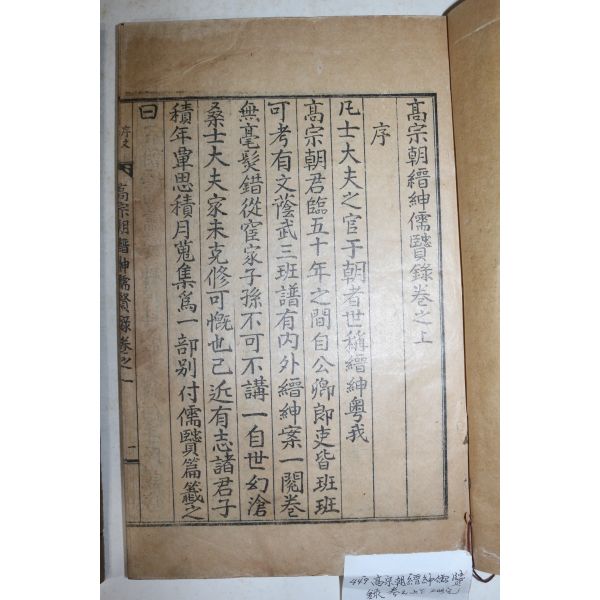 高宗朝縉紳儒賢錄卷之上
序
凡士大夫之官于朝者世稱縉紳粤我
高宗朝君臨五十年之間自公卿郎吏皆班班
可考有文蔭武三班譜有內外縉紳案一閱卷
無毫髮錯從宦家子孫不可不講一自世幻滄
桑士大夫家未克修可慨也已近有志諸君子
積年覃思積月蒐集爲一部別付儒賢篇籤之
曰
序文
高宗朝縉紳儒賢錄卷之一
二
449 高宗朝縉紳儒賢
錄 卷之上下